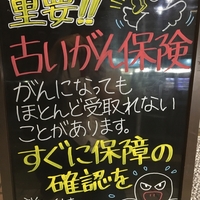 重要!!
古いがん保険
がんになっても
ほとんど受取れない
ことがあります。
すぐに保障の
確認を